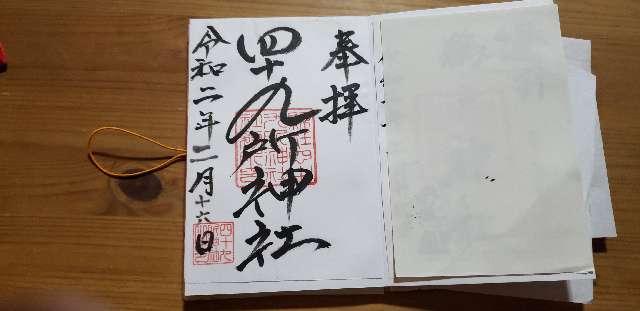 奉拝
四十九所神社
令和二年二月十六日
四十九